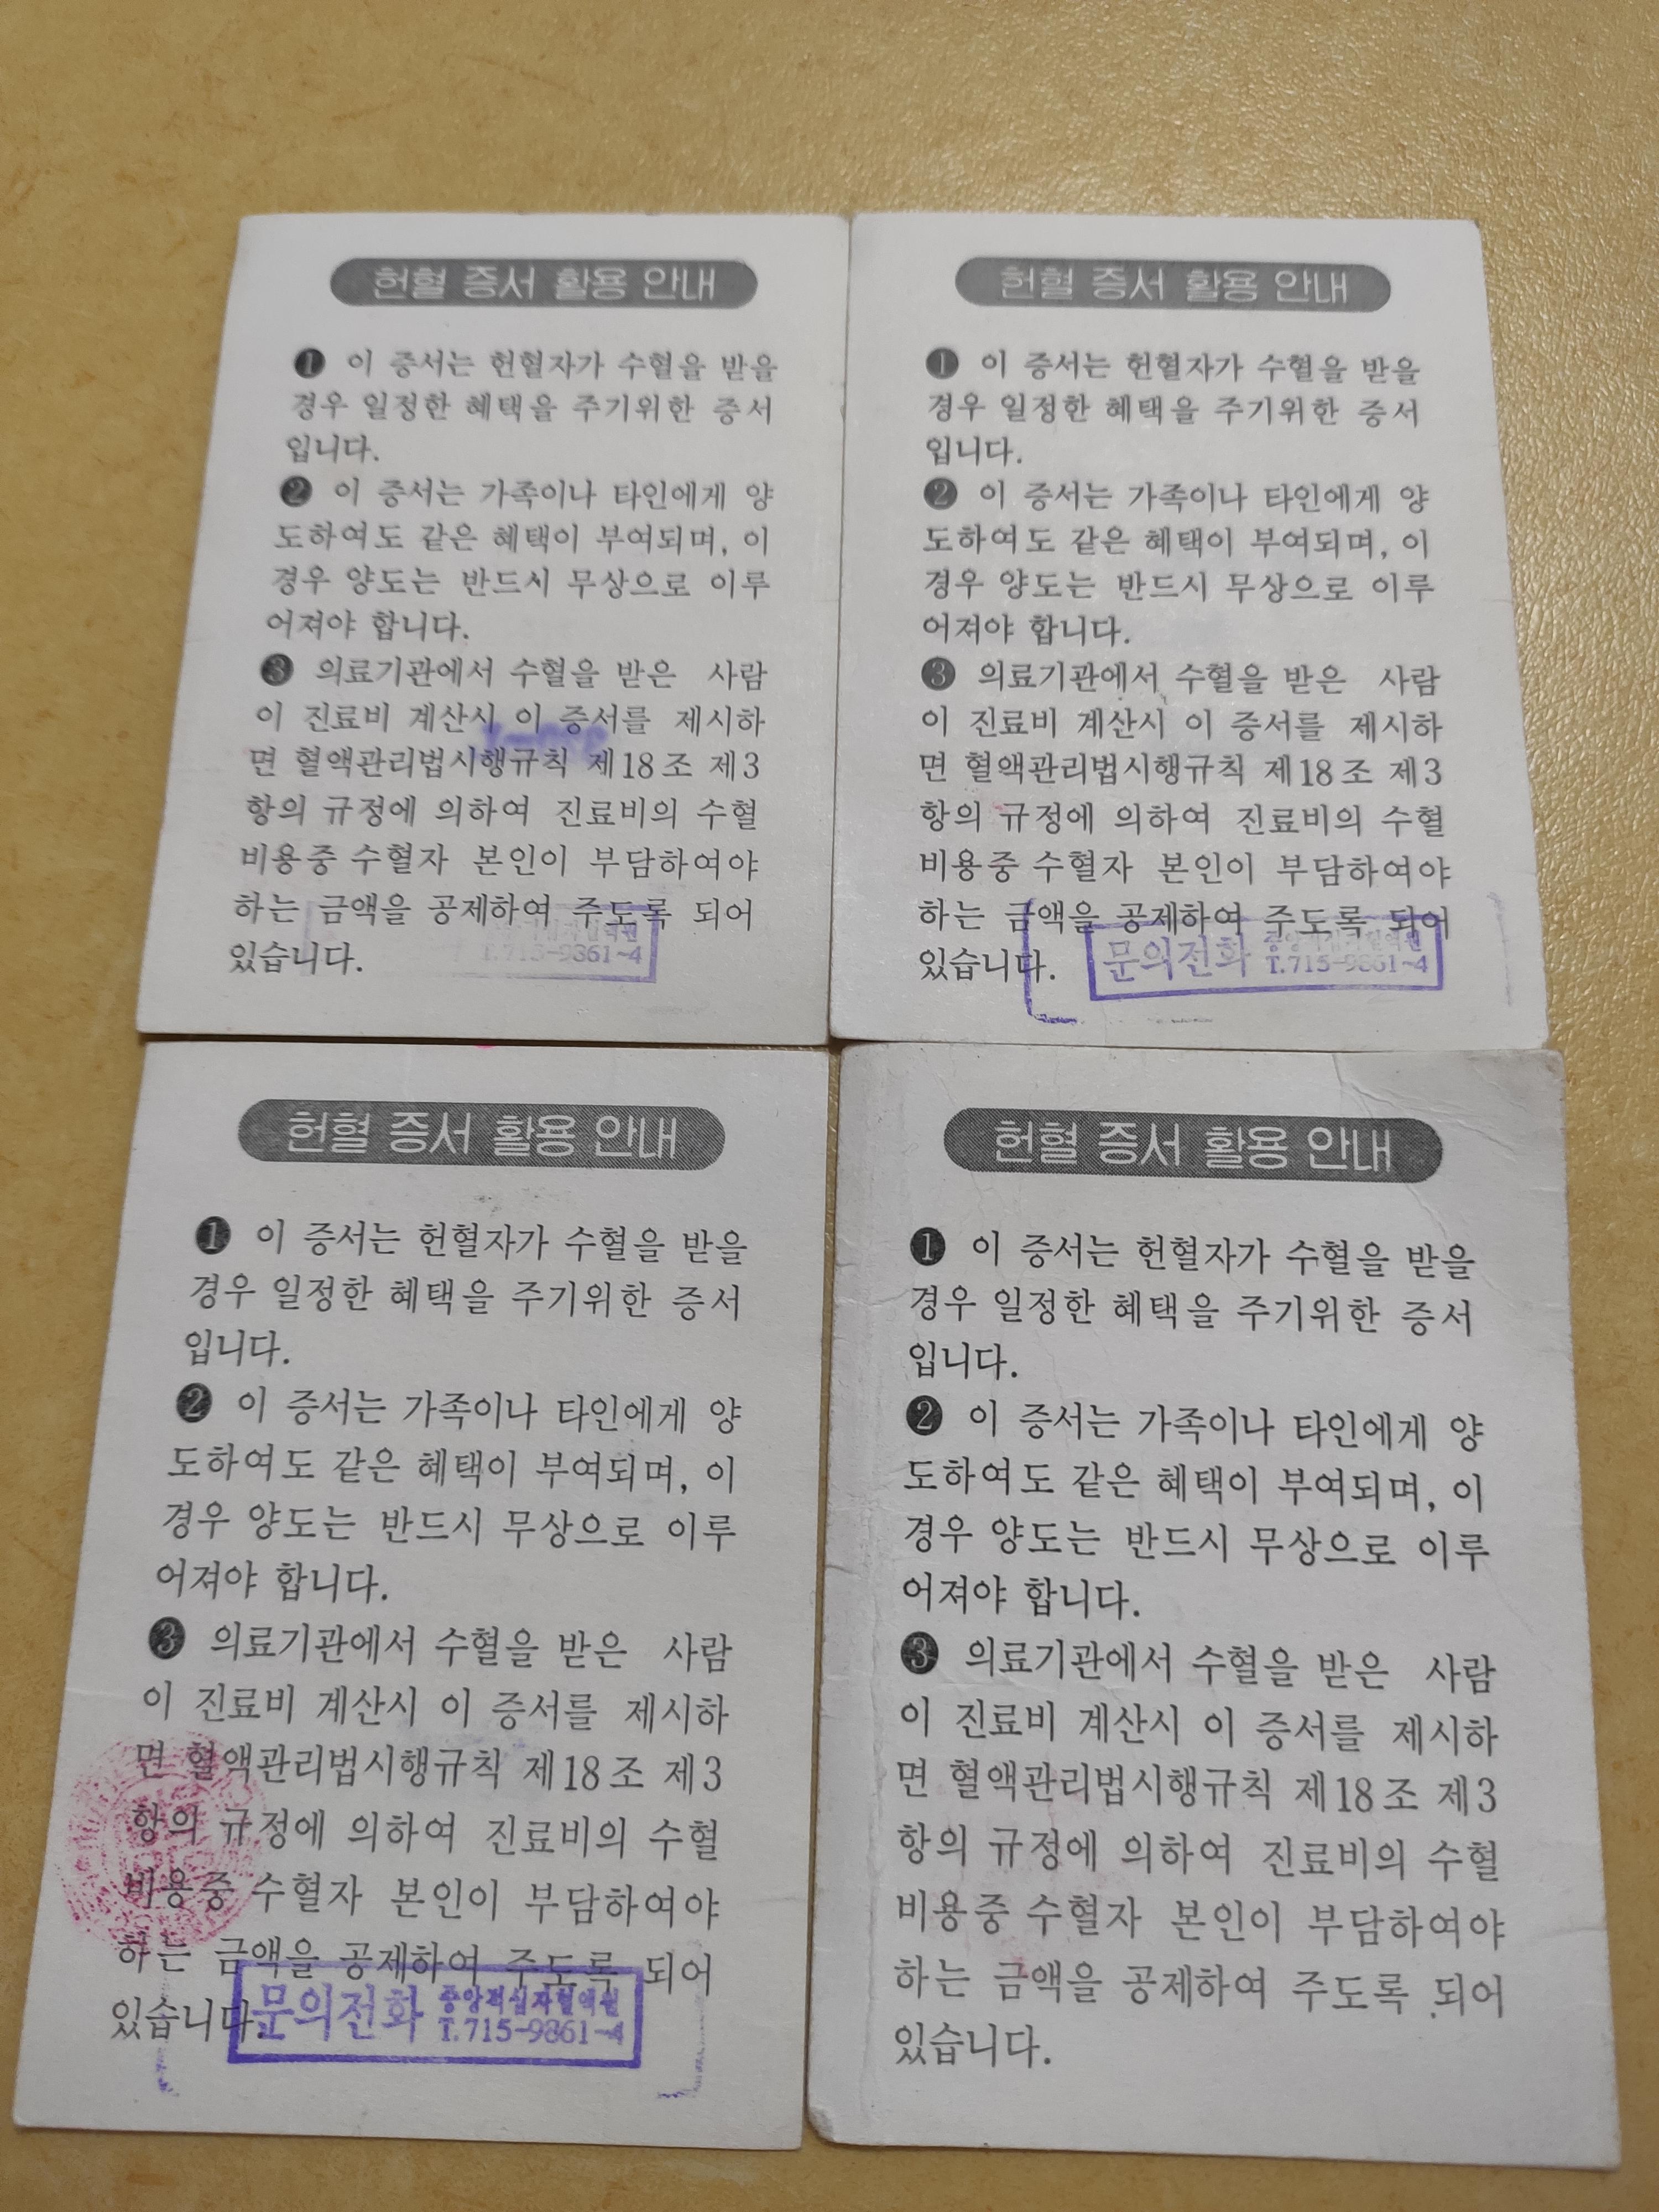 헌혈 증서 활용 안내
❶ 이 증서는 헌혈자가 수혈을 받을
경우 일정한 혜택을 주기위한 증서
입니다.
❷ 이 증서는 가족이나 타인에게 양
도하여도 같은 혜택이 부여되며, 이
경우 양도는 반드시 무상으로 이루
어져야 합니다.
❸ 의료기관에서 수혈을 받은 사람
이 진료비 계산시 이 증서를 제시하
면 혈액관리법시행규칙 제18조 제3
항의 규정에 의하여 진료비의 수혈
비용중 수혈자 본인이 부담하여야
하는 금액을 공제하여 주도록 되어
있습니다.
T.715-9861~4
헌혈 증서 활용 안내
❶ 이 증서는 헌혈자가 수혈을 받을
경우 일정한 혜택을 주기위한 증서
입니다.
❷ 이 증서는 가족이나 타인에게 양
도하여도 같은 혜택이 부여되며, 이
경우 양도는 반드시 무상으로 이루
어져야 합니다.
❸ 의료기관에서 수혈을 받은 사람
이 진료비 계산시 이 증서를 제시하
면 혈액관리법시행규칙 제18조 제3
항의 규정에 의하여 진료비의 수혈
비용중 수혈자 본인이 부담하여야
하는 금액을 공제하여 주도록 되어
있습니다.
문의전화 중앙적십자혈액원
T.715-9861~4
헌혈 증서 활용 안내
❶ 이 증서는 헌혈자가 수혈을 받을
경우 일정한 혜택을 주기위한 증서
입니다.
❷ 이 증서는 가족이나 타인에게 양
도하여도 같은 혜택이 부여되며, 이
경우 양도는 반드시 무상으로 이루
어져야 합니다.
❸ 의료기관에서 수혈을 받은 사람
이 진료비 계산시 이 증서를 제시하
면 혈액관리법시행규칙 제18조 제3
항의 규정에 의하여 진료비의 수혈
비용중 수혈자 본인이 부담하여야
하는 금액을 공제하여 주도록 되어
있습니다.
문의전화 중앙적십자혈액원
T.715-9861~4
헌혈 증서 활용 안내
❶ 이 증서는 헌혈자가 수혈을 받을
경우 일정한 혜택을 주기위한 증서
입니다.
❷ 이 증서는 가족이나 타인에게 양
도하여도 같은 혜택이 부여되며, 이
경우 양도는 반드시 무상으로 이루
어져야 합니다.
❸ 의료기관에서 수혈을 받은 사람
이 진료비 계산시 이 증서를 제시하
면 혈액관리법시행규칙 제18조 제3
항의 규정에 의하여 진료비의 수혈
비용중 수혈자 본인이 부담하여야
하는 금액을 공제하여 주도록 되어
있습니다.